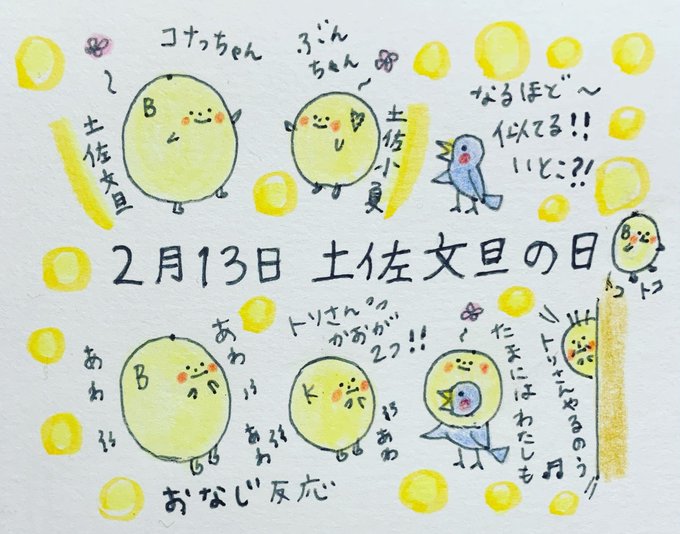 コナっちゃん
ぶんちゃん
B
土佐文旦
土佐小夏
なるほど〜
似てる!!
いとこ?!
2月13日 土佐文旦の日
B
トコ
トコ
B
あわ
あわ
あわ
トリさん
かおが
2つ!!
K
あわ
たまにはわたしも
トリさんやるのう
おなじ反応